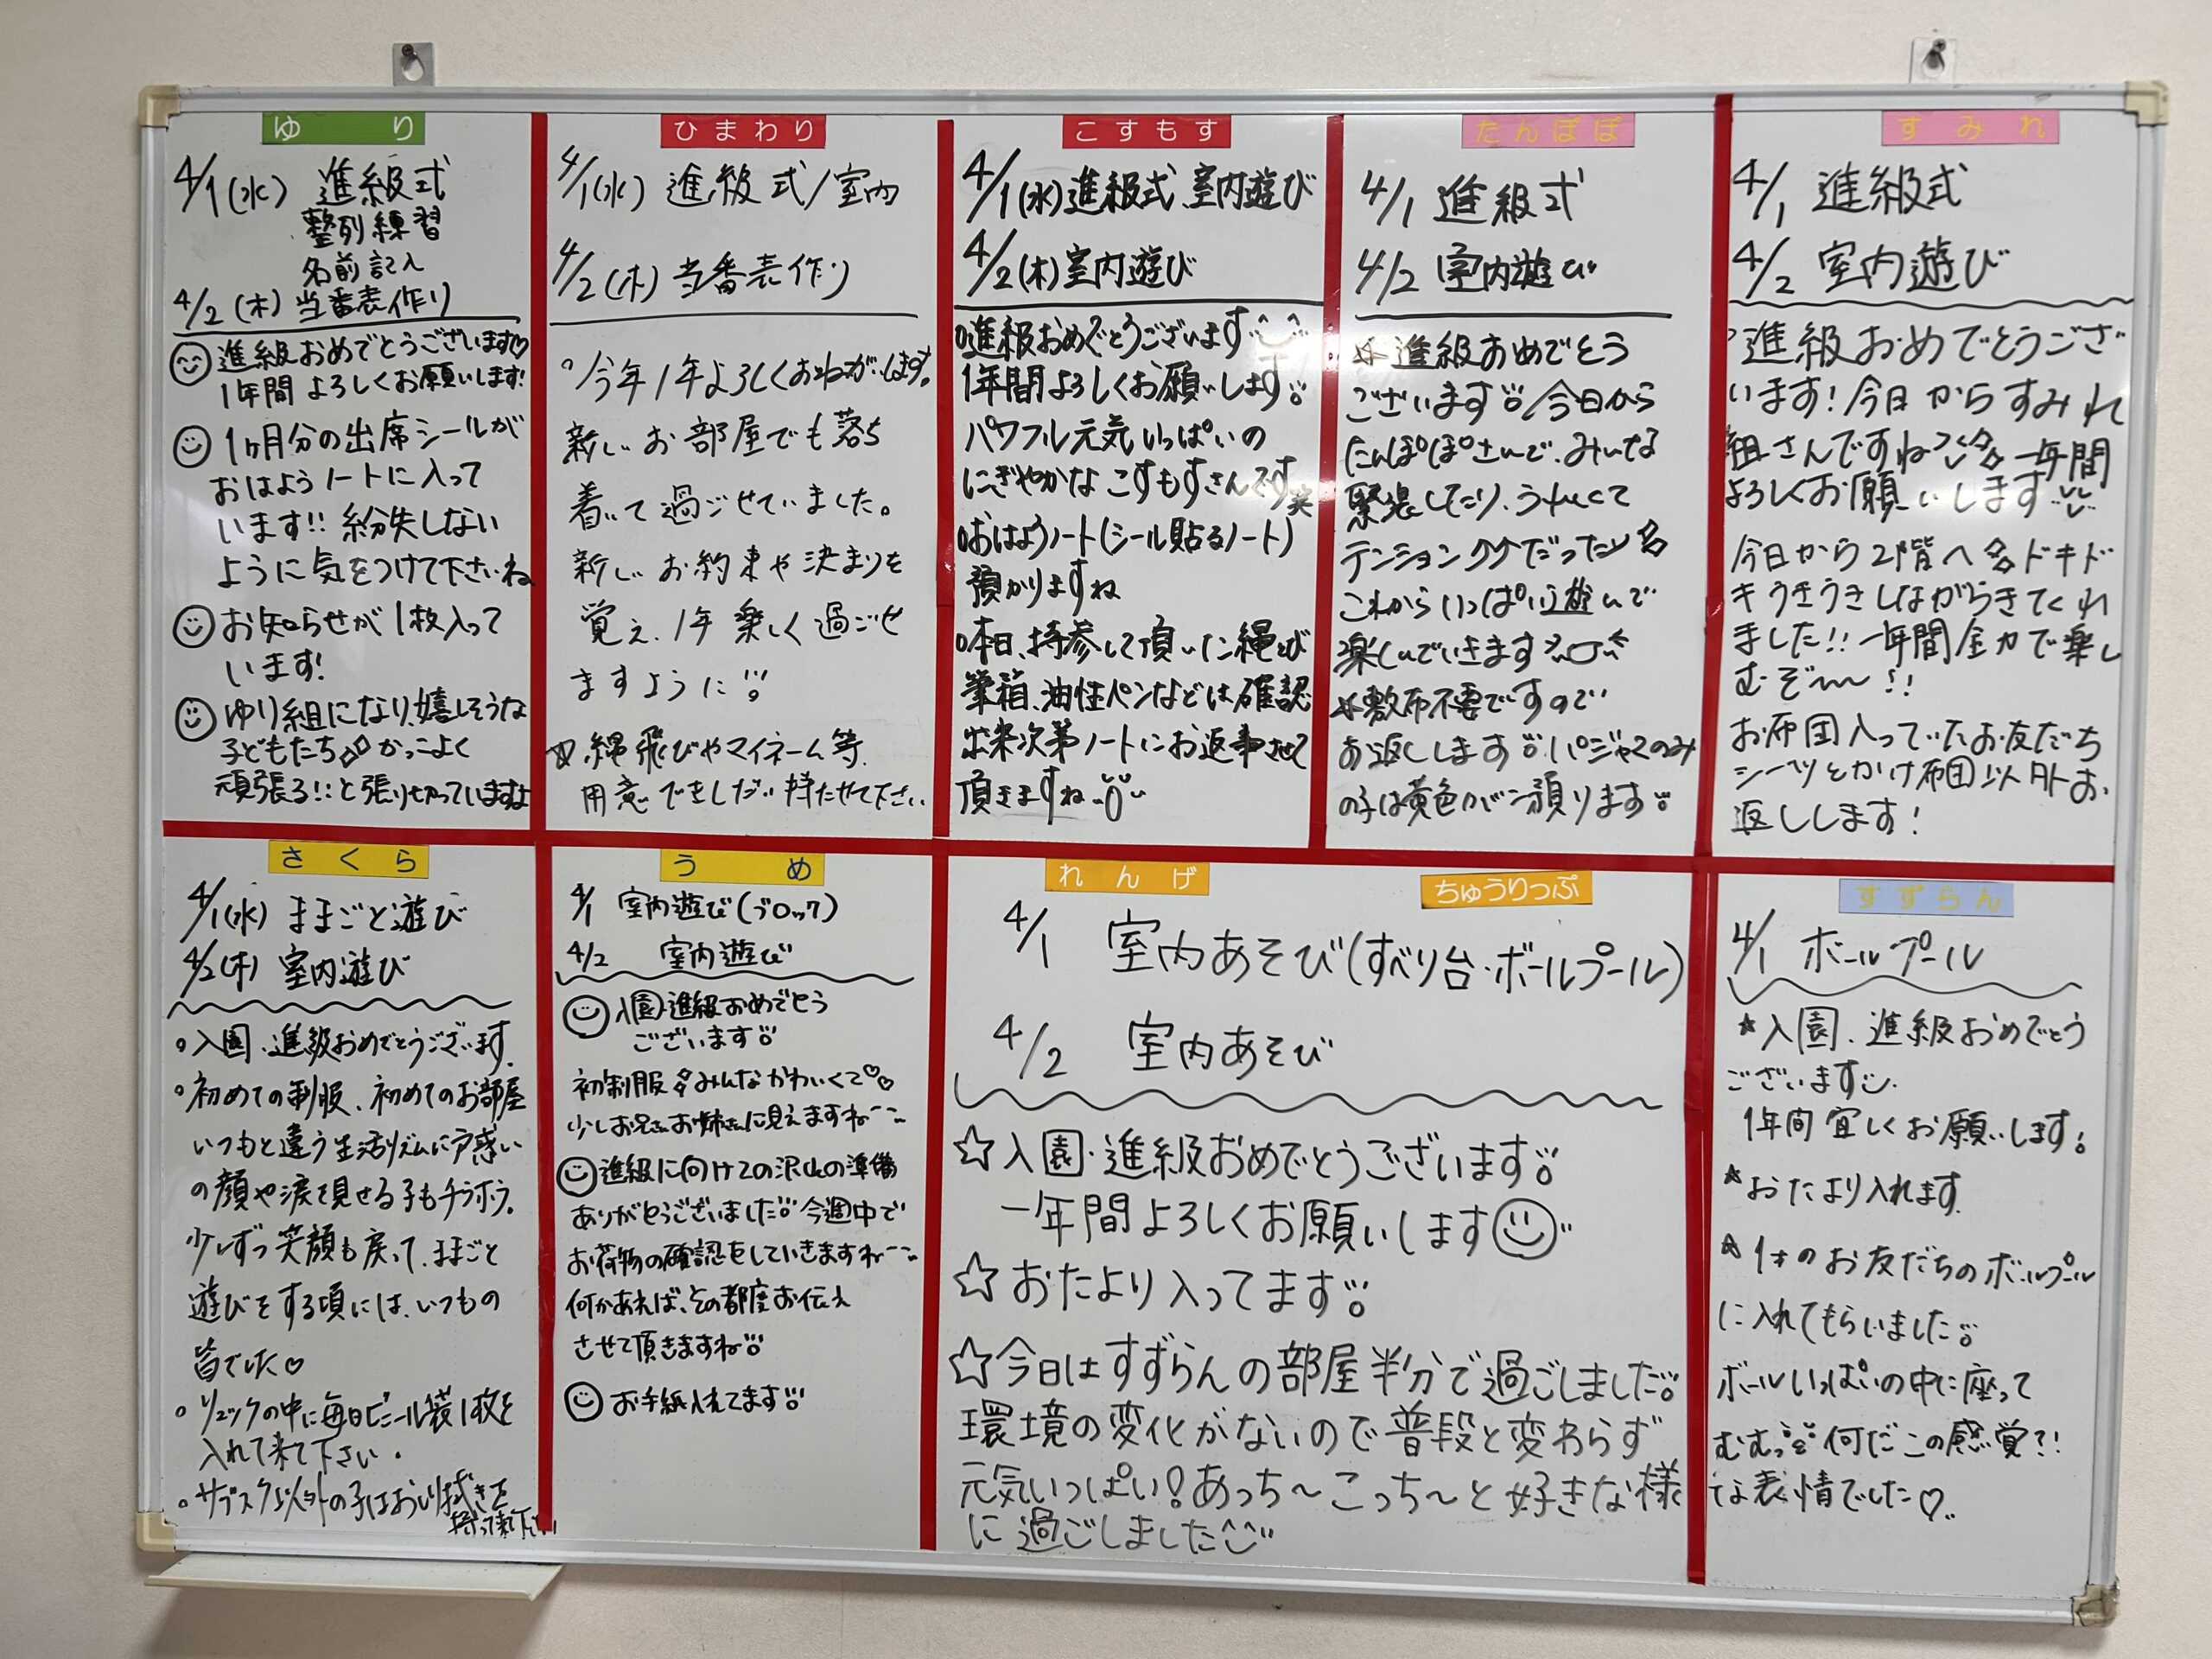 ゆり
4/1(水) 進級式
整列練習
名前記入
4/2(木) 当番表作り
進級おめでとうございます♡
1年間よろしくお願いします!
1ヶ月分の出席シールが
おはようノートに入って
います!! 紛失しない
ように気をつけて下さいね
お知らせが1枚入って
います!
ゆり組になり、嬉しそうな
子どもたち かっこよく
頑張る!!と張り切っていますよ
ひまわり
4/1(水) 進級式/室内
4/2(木) 当番表作り
。今年1年よろしくおねがいします。
新しいお部屋でも落ち
着いて過ごせていました。
新しいお約束や決まりを
覚え、1年楽しく過ごせ
ますように
☆縄飛びやマイネーム等、
用意できしだい持たせて下さい
こすもす
4/1(水)進級式、室内遊び
4/2(木)室内遊び
○進級おめでとうございます
1年間よろしくお願いします
パワフル元気いっぱいの
にぎやかなこすもすさんです笑
○おはようノート(シール貼るノート)
預かりますね
○本日、持参して頂いた縄とび
筆箱、油性ペンなどは確認
出来次第ノートにお返事させて
頂きますね
たんぽぽ
4/1 進級式
4/2 室内遊び
☆進級おめでとう
ございます/今日から
たんぽぽさんで、みんな
緊張したり、うれしくて
テンション⤴⤴だったり
これからいっぱい遊んで
楽しんでいきます
☆敷布不要ですので
お返しします。パジャマのみ
の子は黄色カバン預ります
すみれ
4/1 進級式
4/2 室内遊び
○進級おめでとうござ
います!今日からすみれ
組さんですね 一年間
よろしくお願いします
今日から2階へ ドキド
キうきうきしながらきてくれ
ました!! 一年間全力で楽し
むぞ〜〜!!
お布団入っていたお友だち
シーツとかけ布団以外お
返しします!
さくら
4/1(水) ままごと遊び
4/2(木) 室内遊び
。入園、進級おめでとうございます。
。初めての制服、初めてのお部屋
いつもと違う生活リズムに戸惑い
の顔や涙を見せる子もチラホラ。
少しずつ笑顔も戻って、ままごと
遊びをする頃には、いつもの
皆でした♡
。リュックの中に毎日ビニール袋1枚を
入れて来て下さい。
。サブスク以外の子はおしり拭きを
持って来て下さい
うめ
4/1 室内遊び(ブロック)
4/2 室内遊び
入園進級おめでとう
ございます
初制服 みんなかわいくて♡♡
少しお兄さんお姉さんに見えますね
進級に向けての沢山の準備
ありがとうございました 今週中で
お荷物の確認をしていきますね
何かあれば、その都度お伝え
させて頂きますね
お手紙入れてます
れんげ ちゅうりっぷ
4/1 室内あそび(すべり台・ボールプール)
4/2 室内あそび
☆入園・進級おめでとうございます
一年間よろしくお願いします
☆おたより入ってます
☆今日はすずらんの部屋半分で過ごしました
環境の変化がないので普段と変わらず
元気いっぱい!あっち〜こっち〜と好きな様
に過ごしました
すずらん
4/1 ボールプール
★入園、進級おめでとう
ございます
1年間宜しくお願いします
★おたより入れます
★1才のお友だちのボールプール
に入れてもらいました
ボールいっぱいの中に座って
むむっ 何だこの感覚?!
な表情でした♡